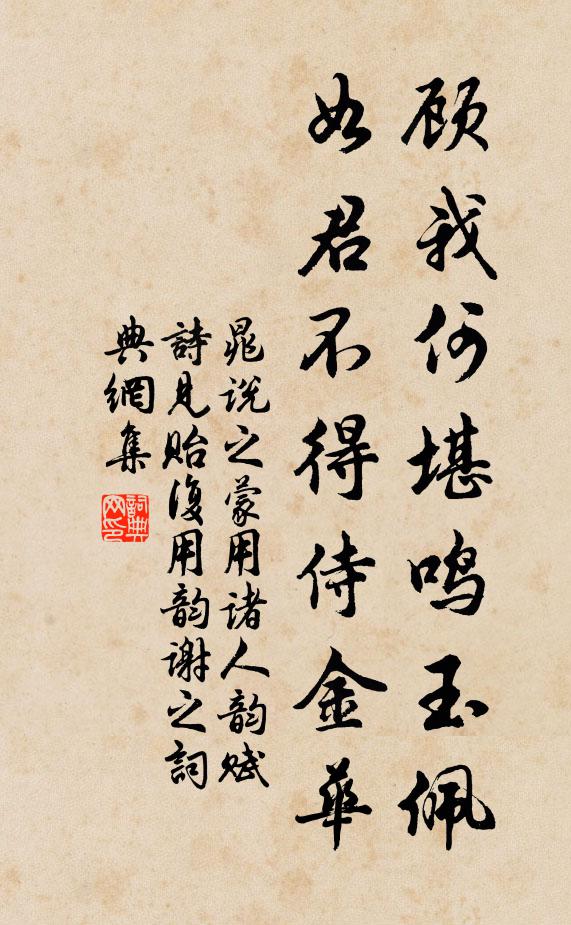 顾我何堪鸣玉佩
如君不得侍金華
晁说之蒙用诸人韵赋
詩見貽復用韵谢之詞
典網集
詞典网印